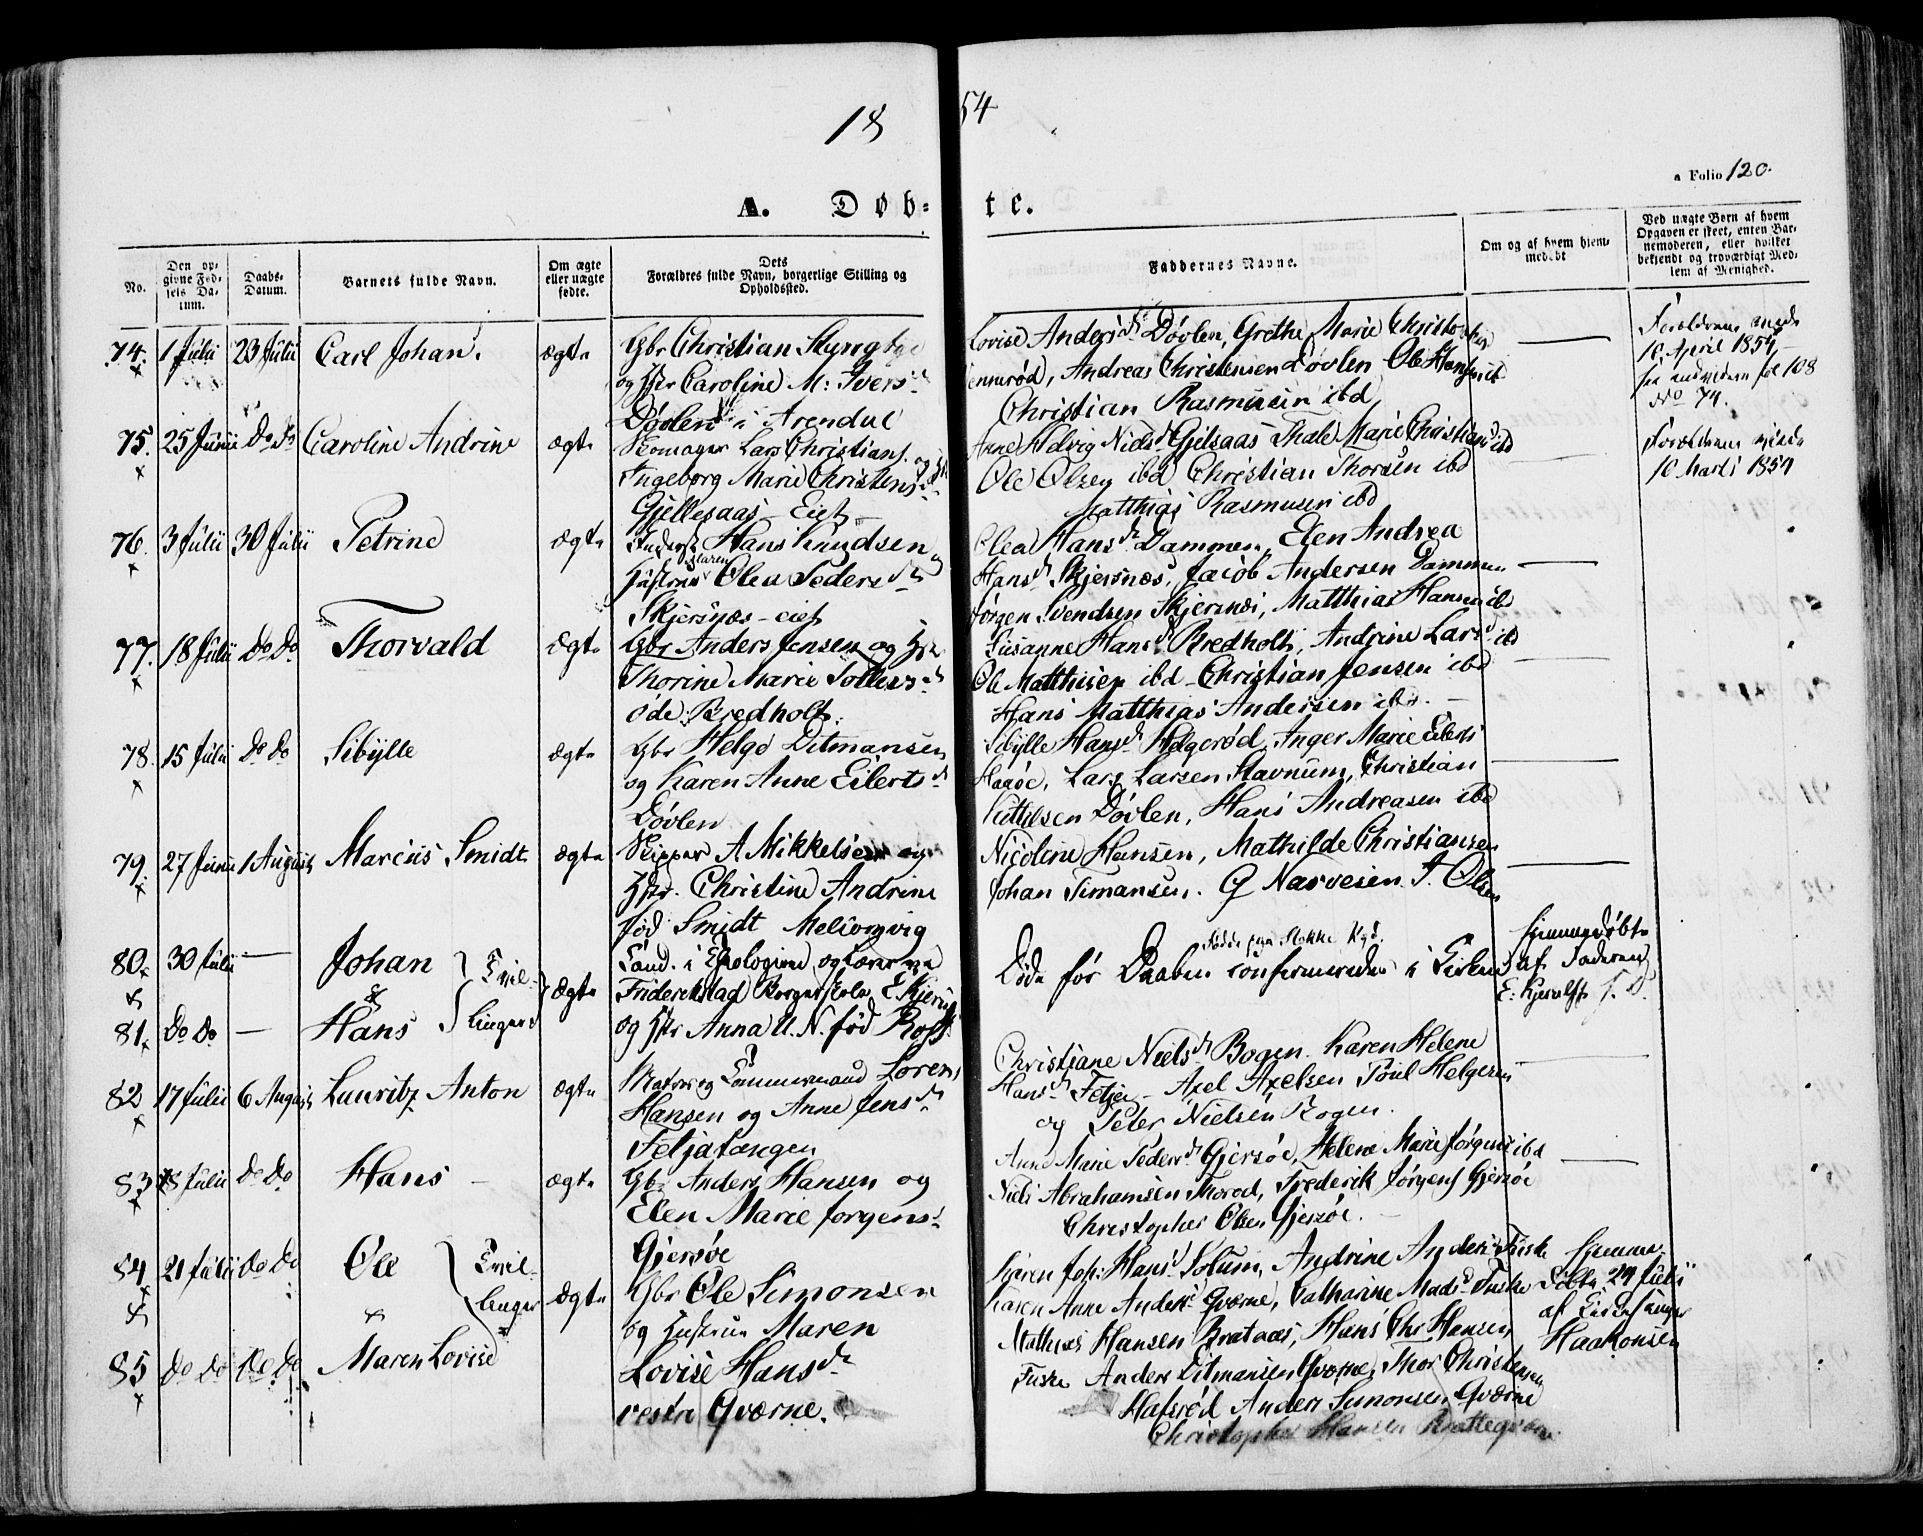 18 54
a Folio 120.
A. Døb- te.
No.
Den op-
givne Fød-
sels Da-
tum.
Daabs-
Datum.
Barnets fulde Navn.
Om ægte
eller uægte
fødte.
Dets
Forældres fulde Navn, borgerlige Stilling og
Opholdssted.
Faddernes Navne.
Om og af hvem hjem-
medøbt
Ved uægte Børn af hvem
Opgaven er skeet, enten Bar-
nemoderen, eller hvilket
bekjendt og troværdigt Med-
lem af Menighed.
74. 1 Julii 23 Julii Carl Johan. ægte
Gbr Christian
og Caroline M: Ivers d.
Døvlen i Arendal
Lovise Anders d. Døvlen, Grethe Marie
Andreas Christensen Døvlen Ole
Christian Rasmusen ibd
Forældrene
10 April 1854
fol 108
No 74.
75. 25 Junii Do Do Caroline Andrine ægte
Skomager Lars Christians. og
Ingeborg Marie Christens d.
Gjellesaas Eiet
Anne Helvig Niels d. Gjelsaas Thale Marie Christians d ibd
Ole Olsen ibd Christian Thorsen ibd
Matthias Rasmusen ibd
Forældrene
10 Marts 1854
76. 3 Julii 30 Julii Petrine ægte
Inderst Hans Knudsen og
Hustrue Maren Olea Peders d.
Skjersnæs - eiet
Olea Hans d. Dammen, Elen Andrea
Hans d. Skjersnæs, Jacob Andersen Dammen
Jørgen Svendsen Skjersnæs, Matthias Hansen ibd
77. 18 Julii Do Do Thorvald ægte
Gbr Anders Jensen og
Thorine Marie d.
øde: Bredholt.
Susanne Hans d. Bredholt, Andrine Lars d ibd
Ole Matthisen ibd - Christian Jensen ibd
Hans Matthias Andersen ibd. -
78. 15 Julii Do Do Sibylle ægte
Gbr Helge Ditmansen
og Karen Anne Eilerts d.
Døvlen
Sibylle Hans d. Helgerød, Anger Marie Eilerts
Haaøe, Lars Larsen Stavnum, Christian
Kittelsen Døvlen, Hans Andreasen ibd
79. 27 Junii 1 August Marcus Smidt ægte
Skipper A Mikkelsen og
Christine Andrine
fød Smidt Melsomvig
Nicoline Hansen, Mathilde Christiansen
Johan Timansen. G Narvesen. T. Olsen
80. 30 Julii - Johan
Tvil-
lingers
ægte
81. Do Do - Hans
Cand. i Theologien og Lærer ved
Friderikstad Borgerskole E Kjerulf
og Anna U. N. fød
Døde før Daaben confirmeredes i Kirken
hjemmedøbte
af Faderen
E: Kjerulff
82 17 Julii 6 August Lauritz Anton ægte
Matros og Tømmermand Lorens
Hansen og Anne Jens d.
Feljatangen
Christiane Niels d. Bogen. Karen Helene
Hans d. Feljen - Axel Axelsen Poul Helgesen
og Peter Nielsen Bogen.
83 18 Julii Do Do Hans - ægte
Gbr Anders Hansen og
Elen Marie Jørgens d.
Gjersøe
Anne Marie Peders d. Gjersøe, Helene Marie Jørgens d ibd
Niels Abrahamsen Thorød, Frederik Jørgens Gjersøe
Christopher Olsen Gjersøe. -
84 21 Julii Do Do Ole
Tvil-
linger
ægte
Gbr Ole Simonsen
og Hustrue Maren
Lovise Hans d.
vestre Gværne.
85 Do Do Do Do Maren Lovise
Hans d. Solum, Andrine Anders d Fuske
Karen Anne Anders d. Gværne, Catharine Mads d. Fuske
Mathias Hansen Brataas, Hans Chr Hansen
Fuske Anders Ditmansen Gværne, Thor Christensen
Hafsrød Anders Simonsen Gværne
Christopher Hansen
hjemme
døbte 29 Julii
af Kirkesanger
Haakonsen